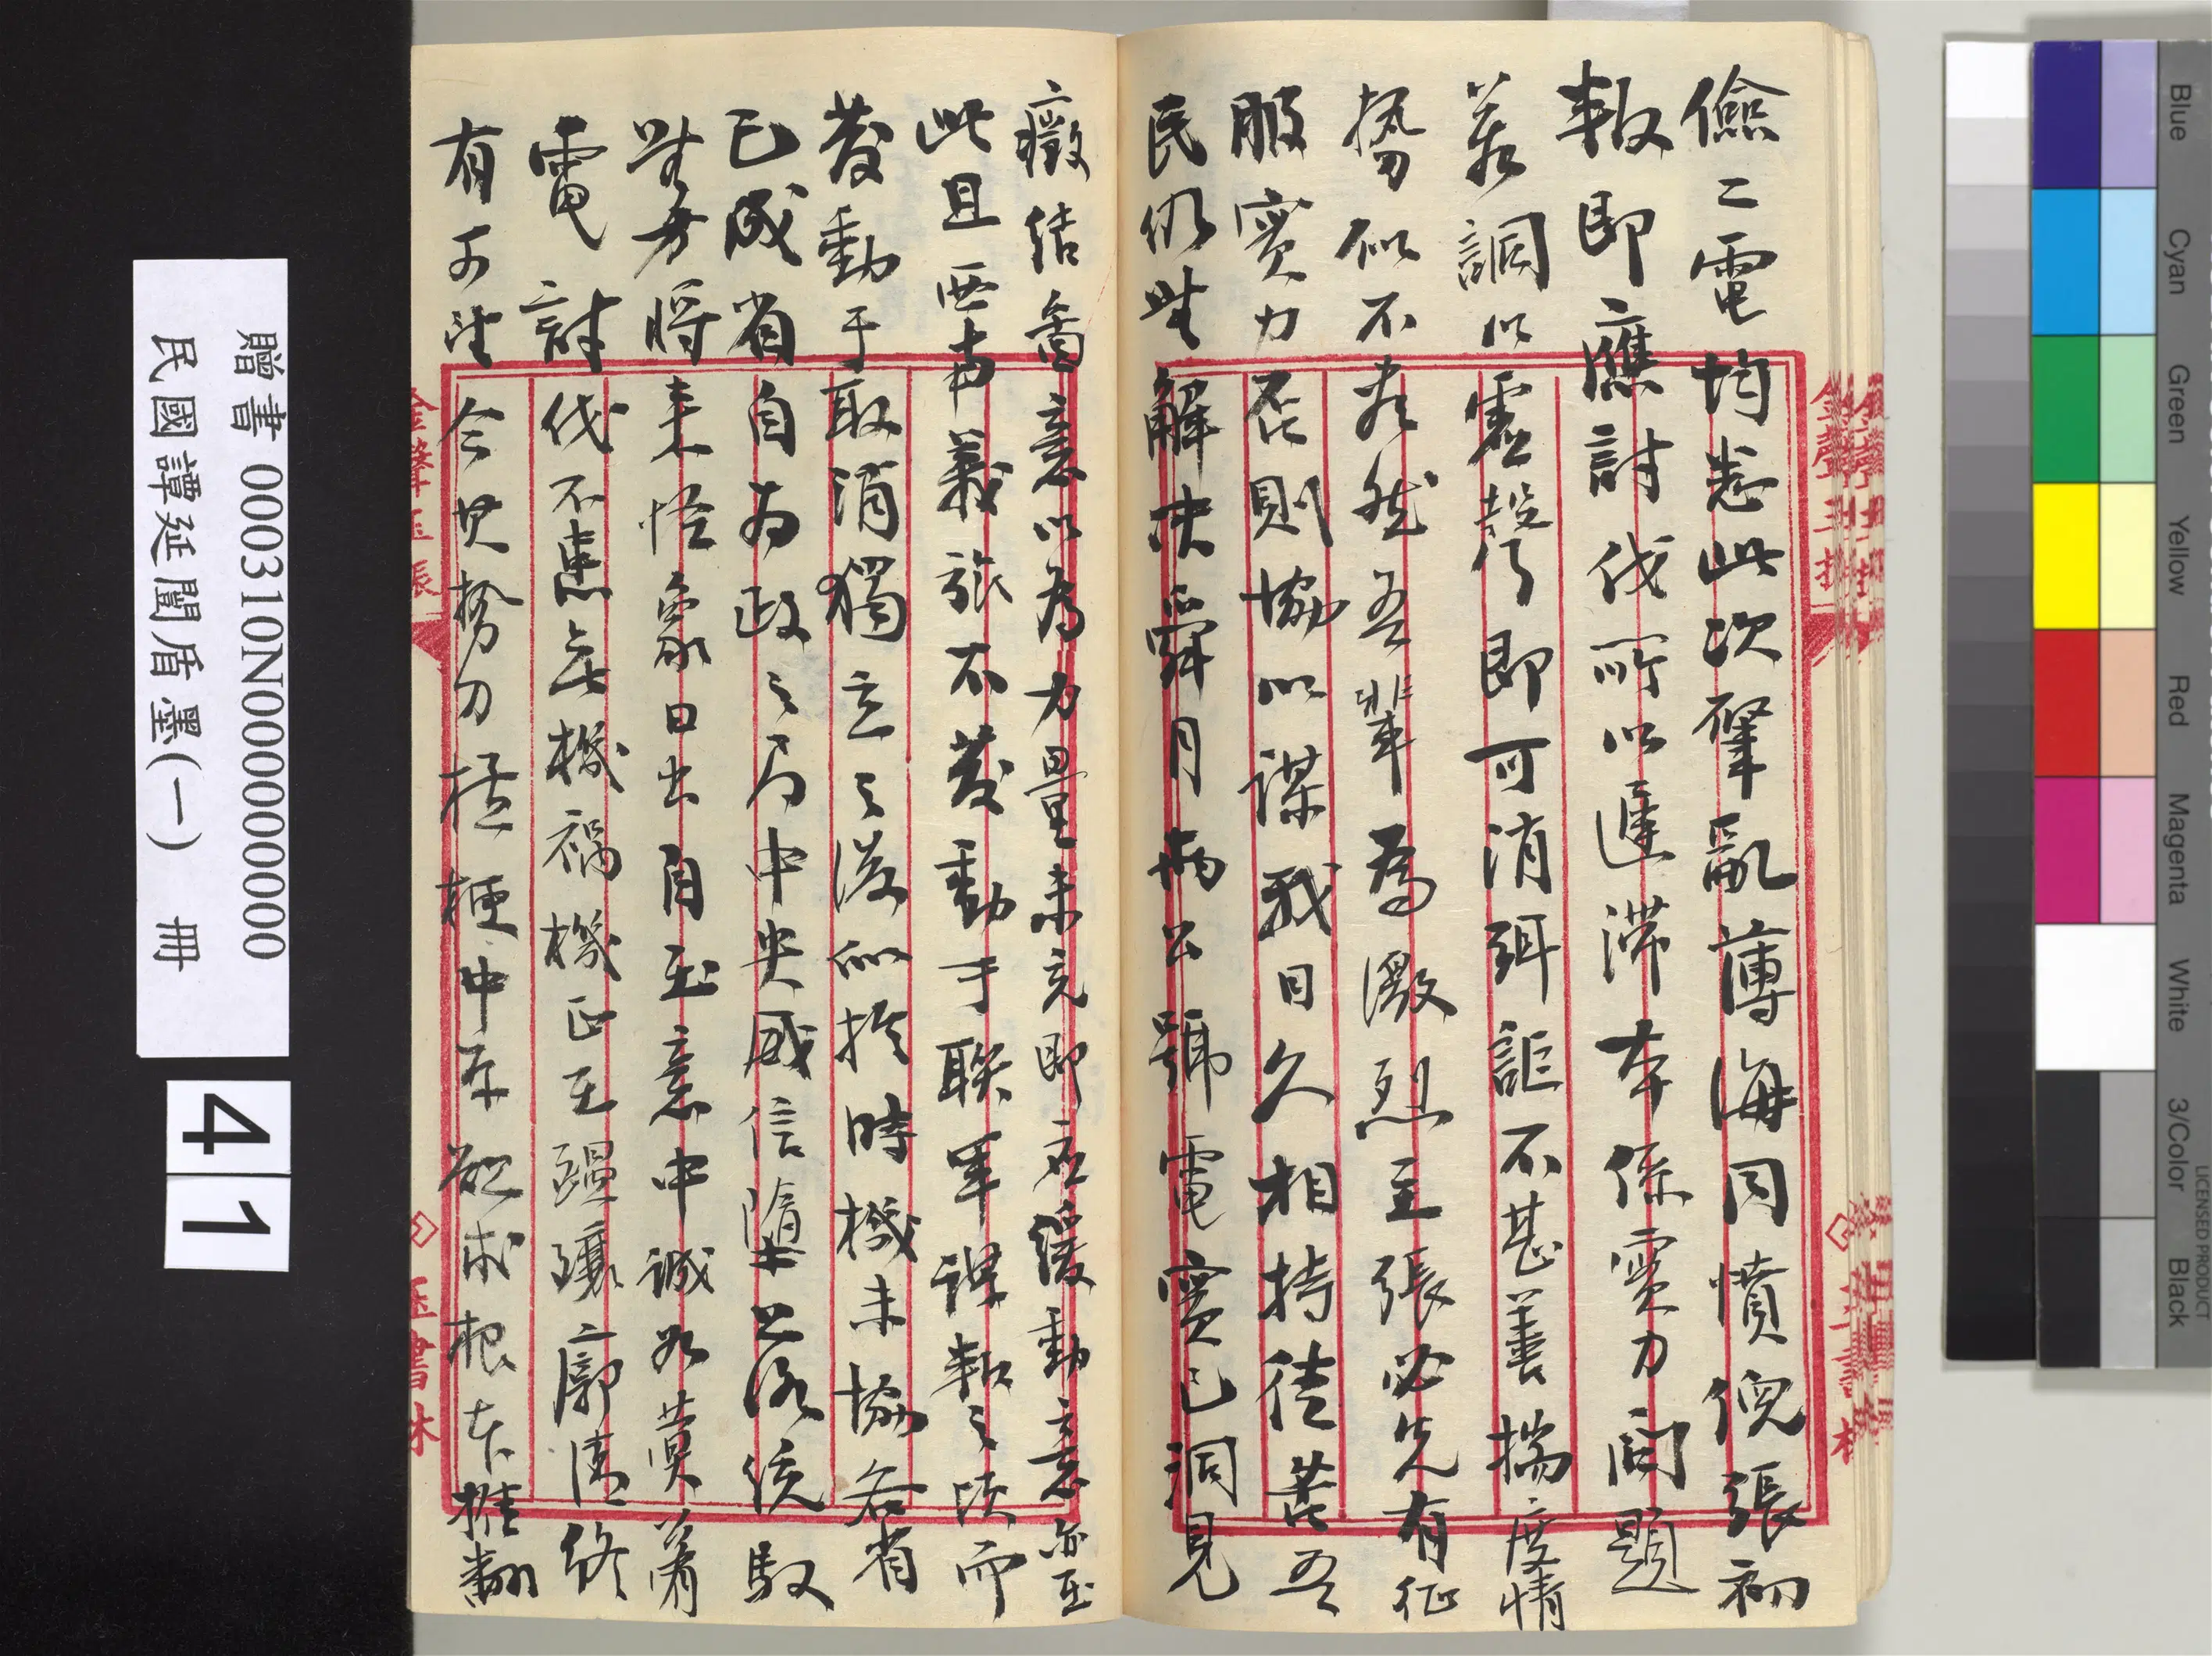 儉二電均悉此次肇亂薄海同憤倪張初
叛即應討伐所以遲滯本係實力問題
若調以虛聲即可消弭詎不甚善揣度情
勢似不盡然吾輩為激烈主張必先有征
服實力否則協以謀我日久相持徒苦吾
民仍無解決舜月兩公號電實已洞見
癥結鄙意以為力量未充即應緩動意亦至
此且西南義旅不發動于聯軍謀叛之時而
發動于取消獨立之後似於時機未協各省
已成省自為政之局中央威信墮落統馭
無方將來怪象日出自在意中誠如蓂葊
電討伐不患無機禍機正在醞釀廓清終
有可望今其撐力搘梗中原欲求根本推翻
贈書 000310N000000000000
民國譚延闓盾墨(一) 冊
41
金聲玉振
玉書林
Blue
Cyan
Green
Yellow
Red
Magenta
White
3/Color
Black
LICENSED PRODUCT